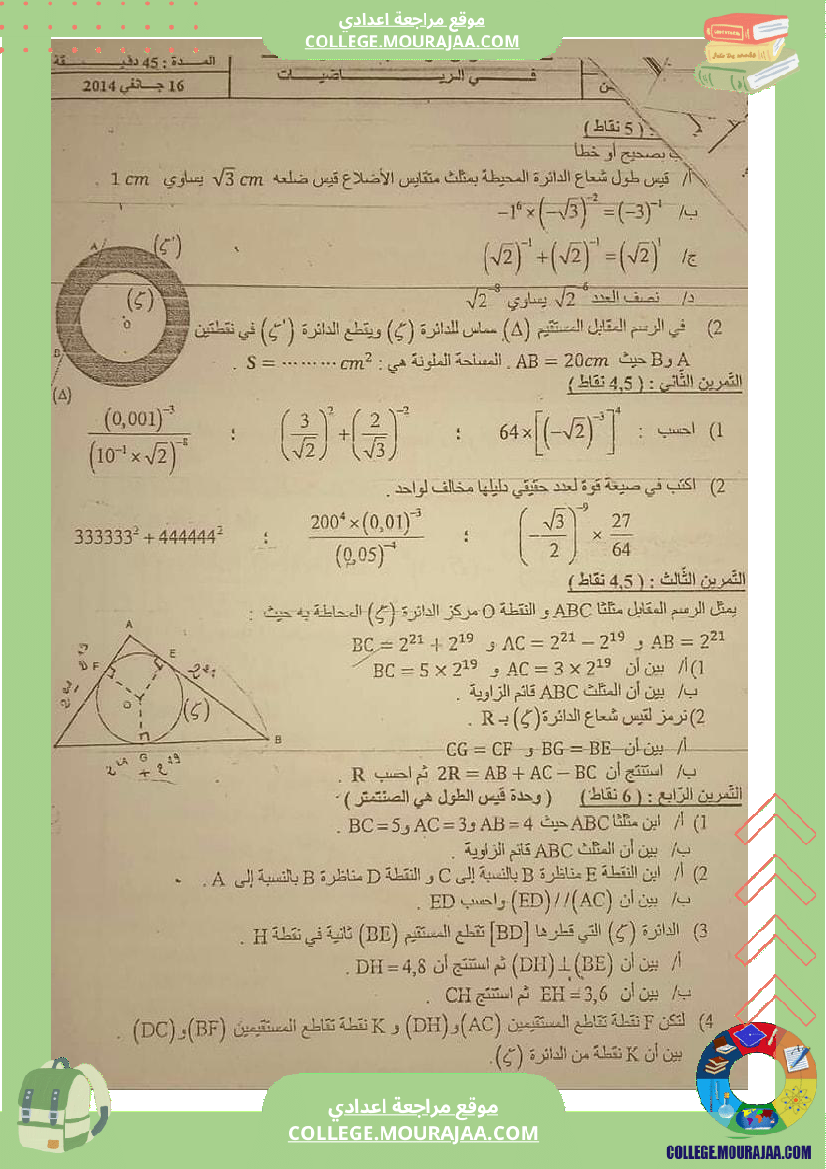 موقع مراجعة اعدادي
COLLEGE.MOURAJAA.COM
المدة : 45 دقيقة
16 جانفي 2014
في الرياضيات
( 5 نقاط )
بصحيح أو خطأ
أ/ قيس طول شعاع الدائرة المحيطة بمثلث متقايس الأضلاع قيس ضلعه √3 cm يساوي 1 cm .
ب/ −1⁶ × (−√3)⁻² = (−3)⁻¹
ج/ (√2)⁻¹ + (√2)⁻¹ = (√2)¹
د/ نصف العدد √2⁻⁶ يساوي √2⁻⁸
2) في الرسم المقابل المستقيم (Δ) مماس للدائرة (ζ) ويقطع الدائرة (ζ') في نقطتين
A و B حيث AB = 20cm . المساحة الملونة هي : S = ……… cm² .
A
(ζ')
(ζ)
O
B
(Δ)
التمرين الثاني : ( 4,5 نقاط )
1) احسب : 64 × [(−√2)⁻³]⁴ ; (3/√2)² + (2/√3)⁻² ; (0,001)⁻³ / (10⁻¹ × √2)⁻⁸
2) اكتب في صيغة قوة لعدد حقيقي دليلها مخالف لواحد .
(−√3/2)⁻⁹ × 27/64 ; 200⁴ × (0,01)⁻³ / (0,05)⁻⁴ ; 333333² + 444444²
التمرين الثالث : ( 4,5 نقاط )
يمثل الرسم المقابل مثلثا ABC و النقطة O مركز الدائرة (ζ) المحاطة به حيث :
AB = 2²¹ و AC = 2²¹ − 2¹⁹ و BC = 2²¹ + 2¹⁹
1) أ/ بين أن AC = 3 × 2¹⁹ و BC = 5 × 2¹⁹
ب/ بين أن المثلث ABC قائم الزاوية .
2) نرمز لقيس شعاع الدائرة (ζ) بـ R .
أ/ بين أن BG = BE و CG = CF
ب/ استنتج أن 2R = AB + AC − BC ثم احسب R .
A
F
E
2²¹
O
(ζ)
B
G
2²¹ + 2¹⁹
التمرين الرابع : ( 6 نقاط ) ( وحدة قيس الطول هي الصنتمتر )
1) أ/ ابن مثلثا ABC حيث AB = 4 و AC = 3 و BC = 5 .
ب/ بين أن المثلث ABC قائم الزاوية .
2) أ/ ابن النقطة E مناظرة B بالنسبة إلى C و النقطة D مناظرة B بالنسبة إلى A .
ب/ بين أن (ED) // (AC) واحسب ED .
3) الدائرة (ζ) التي قطرها [BD] تقطع المستقيم (BE) ثانية في نقطة H .
أ/ بين أن (DH) ⊥ (BE) ثم استنتج أن DH = 4,8 .
ب/ بين أن EH = 3,6 ثم استنتج CH .
4) لتكن F نقطة تقاطع المستقيمين (AC) و (DH) و K نقطة تقاطع المستقيمين (BF) و (DC) .
بين أن K نقطة من الدائرة (ζ).
موقع مراجعة اعدادي
COLLEGE.MOURAJAA.COM
COLLEGE.MOURAJAA.COM